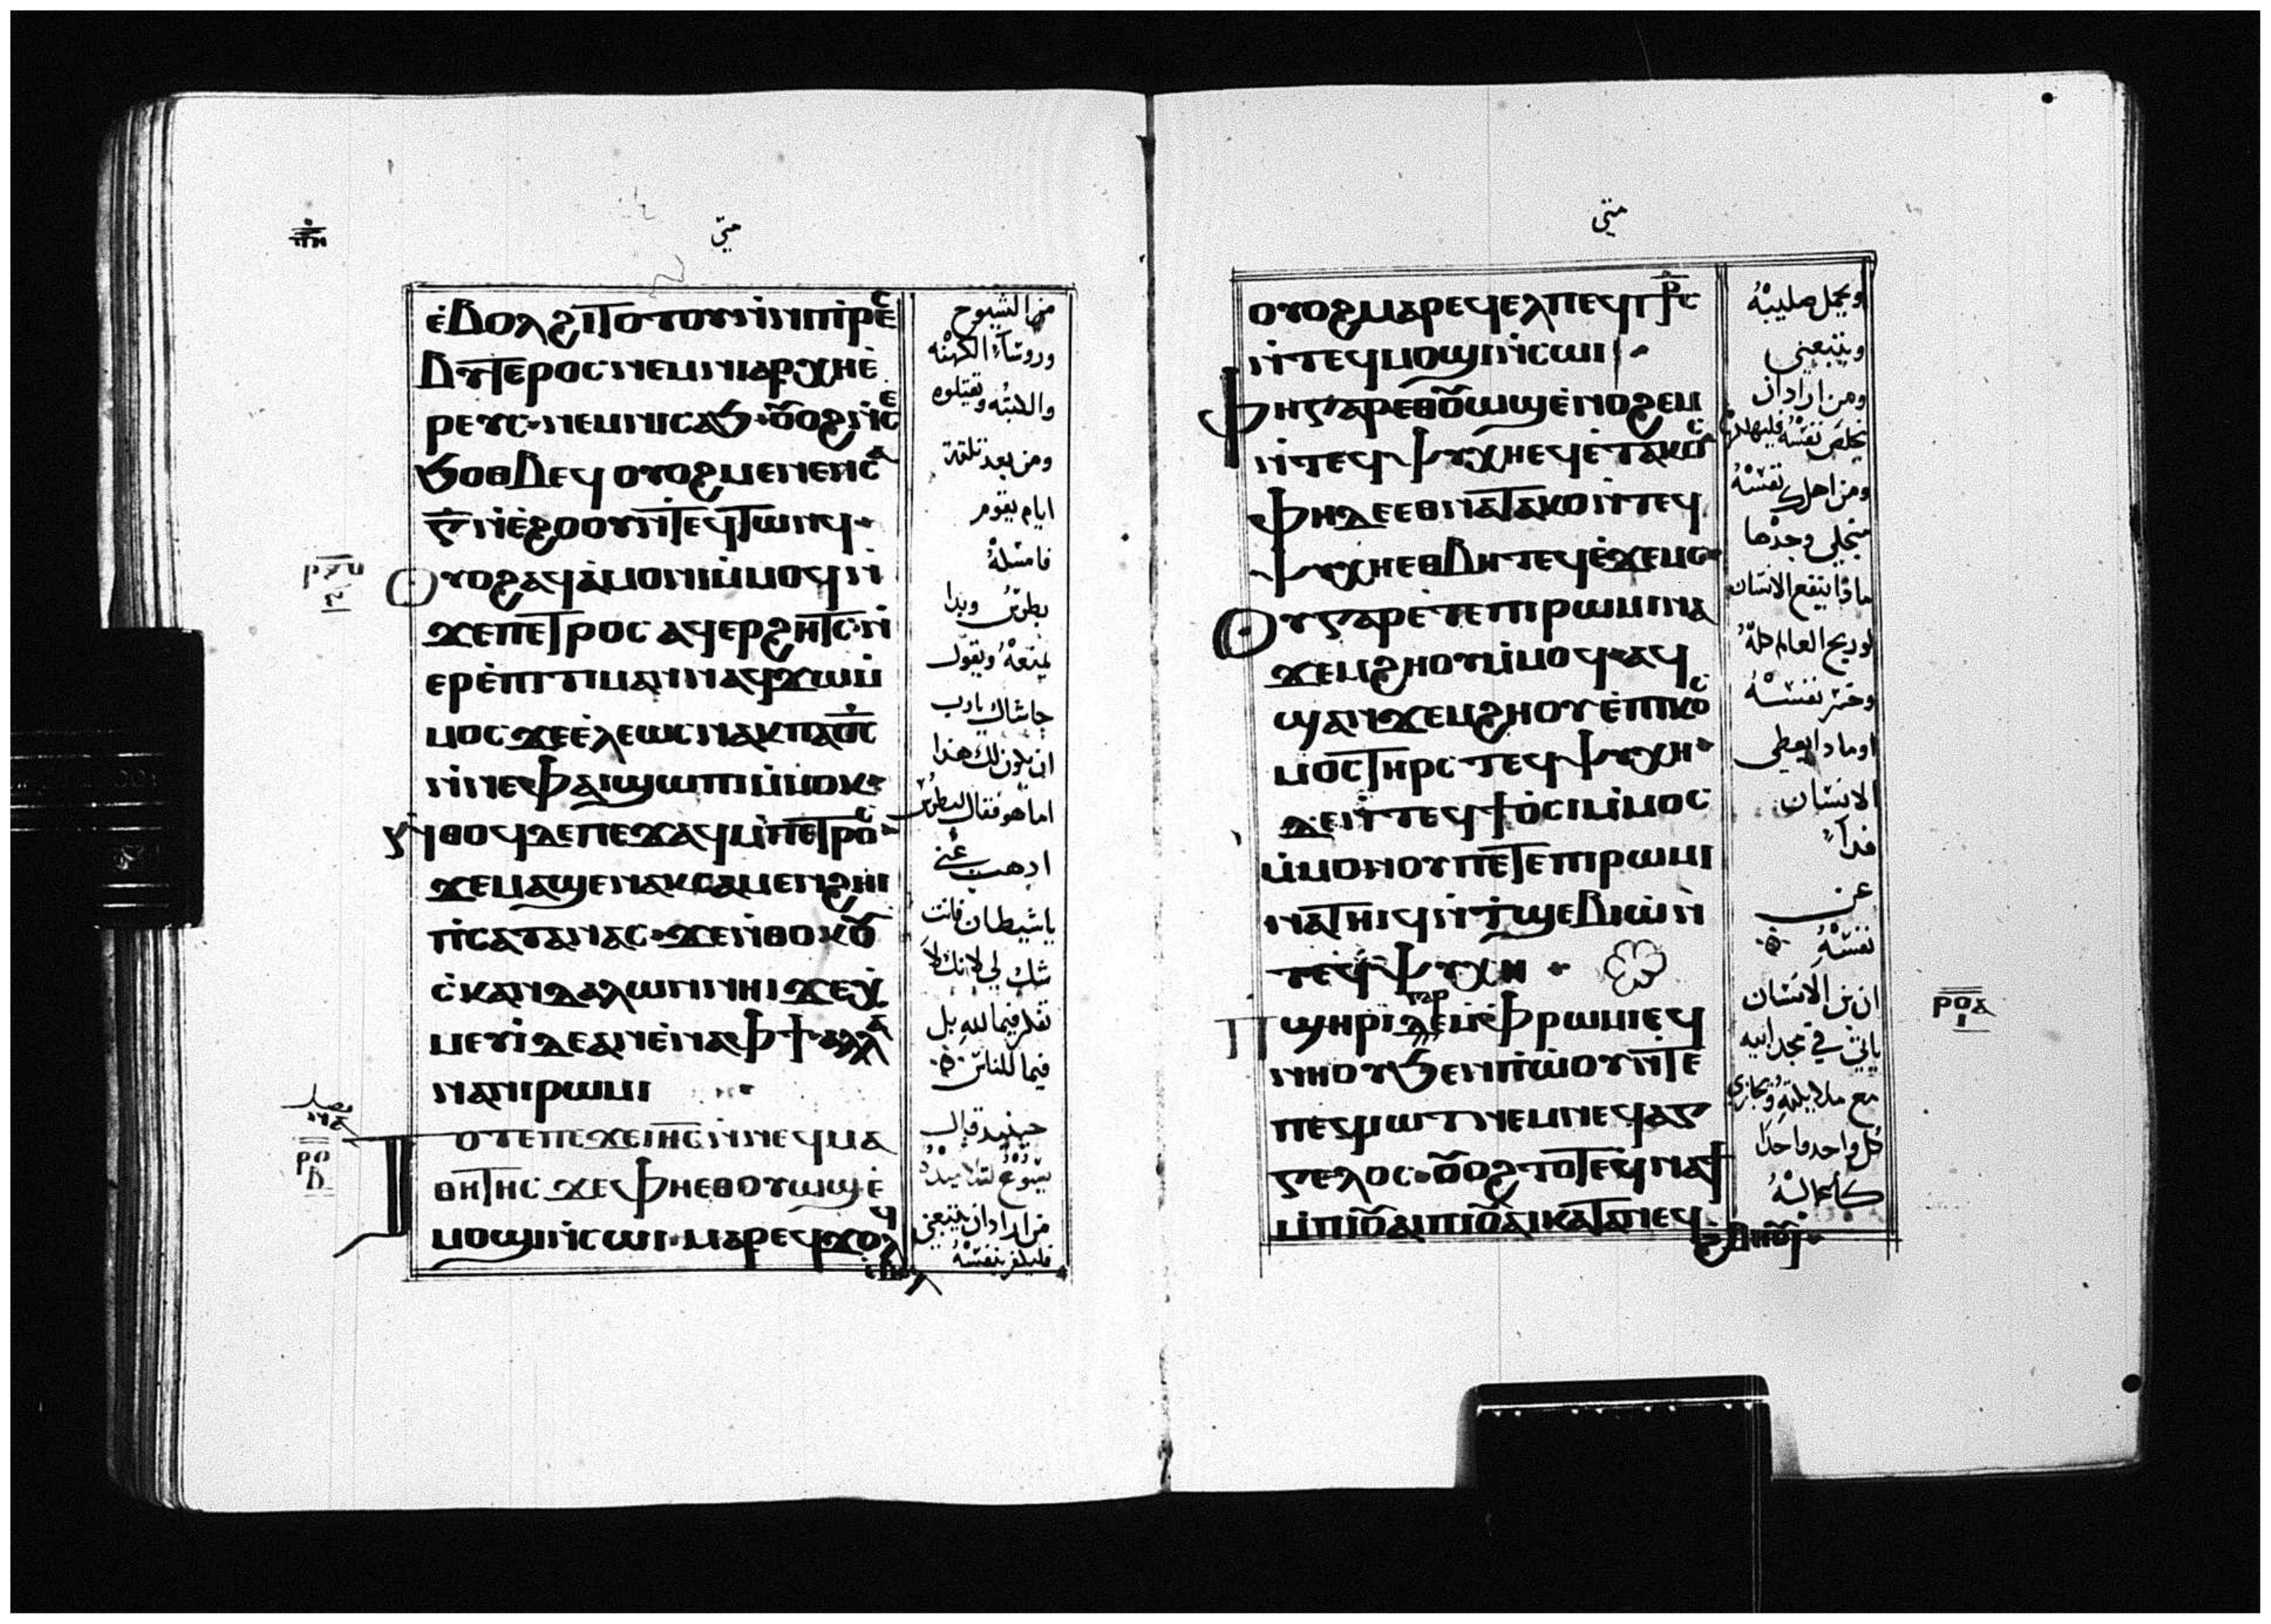 متي
ⲉ̀ⲃⲟⲗϩⲓⲧⲟⲧⲟⲩⲛ̀ⲛⲓⲡⲣⲉⲥ
ⲃⲩⲧⲉⲣⲟⲥⲛⲉⲙⲛⲓⲁⲣⲭⲏⲉ̀
ⲣⲉⲩⲥ·ⲛⲉⲙⲛⲓⲥⲁϧ·ⲟⲩⲟϩⲛ̀ⲥⲉ
ϧⲟⲑⲃⲉϥ ⲟⲩⲟϩⲙⲉⲛⲉⲛⲥⲁ
ⲅ̅ⲛ̀ⲉ̀ϩⲟⲟⲩⲛ̀ⲧⲉϥⲧⲱⲛϥ·
ⲟⲩⲟϩⲁϥⲁ̀ⲙⲟⲛⲓⲙ̀ⲙⲟϥⲛ̀
ϫⲉⲡⲉⲧⲣⲟⲥ ⲁϥⲉⲣϩⲏⲧⲥ·ⲛ̀
ⲉⲣⲉ̀ⲡⲓⲧⲓⲙⲁⲛⲛⲁϥϫⲱⲙ̀
ⲙⲟⲥ ϫⲉⲉ̀ⲗⲉⲱⲥⲛⲁⲕⲡⲁⲟ̅ⲥ̅
ⲛ̀ⲛⲉⲫⲁⲓϣⲱⲡⲓⲙ̀ⲙⲟⲕ·
ⲛ̀ⲑⲟϥⲇⲉⲡⲉϫⲁϥⲙ̀ⲡⲉⲧⲣⲟⲥ·
ϫⲉⲙⲁϣⲉⲛⲁⲕⲥⲁⲙⲉⲛϩⲏⲓ
ⲡⲥⲁⲧⲁⲛⲁⲥ·ϫⲉⲛ̀ⲑⲟⲕⲟⲩ
ⲥ̀ⲕⲁⲛⲇⲁⲗⲱⲛⲛⲏⲓϫⲉⲭ̀
ⲙⲉⲩⲓ̀ⲇⲉⲁⲛⲉ̀ⲛⲁⲫϯ·ⲁⲗⲗⲁ
ⲛⲁⲛⲓⲣⲱⲙⲓ
ⲟⲧⲉⲡⲉϫⲉⲓⲏ̅ⲥ̅ⲛ̀ⲛⲉϥⲙⲁ
ⲑⲏⲧⲏⲥ ϫⲉⲫⲏⲉⲑⲟⲩⲱϣⲉ̀
ⲙⲟϣⲓⲛ̀ⲥⲱⲓ·ⲙⲁⲣⲉϥϫⲟⲗϥ
ⲉ̀ⲃⲟⲗ
منها الشيوخ
وروسآء الكهنه
والكتبه وتقتلوه
ومن بعد ثلثة
ايام يقوم
فامسكهُ
بطرس وبدا
يمنعهُ ويقول
حاشاك يارب
ان يكون لك هذا
اما هو فقال لبطرس
اذهب عني
ياشيطان فانت
شك لي لانك لا
تفكر فيما لله بل
فيما للناس
حينيذ قال
يسوع لتلاميذهُ
من اراد ان يتبعني
فليكفر بنفسهُ
ⲣⲟ
ⲃ
متي
ⲟⲩⲟϩⲙⲁⲣⲉϥⲉⲗⲡⲉϥⲥ̅ⲧ̅ⲣ̅ⲥ̅
ⲛ̀ⲧⲉϥⲙⲟϣⲓⲛ̀ⲥⲱⲓ·
ⲫⲏⲅⲁⲣⲉⲑⲟⲩⲱϣⲉ̀ⲛⲟϩⲉⲙ
ⲛ̀ⲧⲉϥⲯⲩⲭⲏⲉϥⲉ̀ⲧⲁⲕⲟⲥ
ⲫⲏⲇⲉⲉⲑⲛⲁⲧⲁⲕⲟⲛ̀ⲧⲉϥ
ⲯⲩⲭⲏⲉⲑⲃⲏⲧⲉϥⲉ̀ϫⲉⲙⲥ·
ⲟⲩⲅⲁⲣⲉ̀ⲧⲉⲡⲓⲣⲱⲙⲓⲛⲁ
ϫⲉⲙϩⲏⲟⲩⲙ̀ⲙⲟϥ·ⲁϥ
ϣⲁⲛϫⲉⲙϩⲏⲟⲩⲉ̀ⲡⲓⲕⲟⲥ
ⲙⲟⲥⲧⲏⲣϥ·ⲧⲉϥⲯⲩⲭⲏ·
ⲇⲉⲛ̀ⲧⲉϥϯⲟⲥⲓⲙ̀ⲙⲟⲥ
ⲙ̀ⲙⲟⲛⲟⲩⲡⲉⲧⲉⲡⲓⲣⲱⲙⲓ
ⲛⲁⲧⲏⲓϥⲛ̀ⲧϣⲉⲃⲓⲱ̀ⲛ̀
ⲧⲉϥⲯⲩⲭⲏ·
ⲡϣⲏⲣⲓⲅⲁⲣⲙ̀ⲫⲣⲱⲙⲓⲉϥ
ⲛⲏⲟⲩϧⲉⲛⲡ̀ⲱⲟⲩⲛ̀ⲧⲉ
ⲡⲉϥⲓⲱⲧⲛⲉⲙⲛⲉϥⲁⲅ
ⲅⲉⲗⲟⲥ·ⲟⲩⲟϩⲧⲟⲧⲉϥⲛⲁϯ
ⲙ̀ⲡⲓⲟⲩⲁⲓⲡⲓⲟⲩⲁⲓⲕⲁⲧⲁⲛⲉϥ
ϩⲃⲏⲟⲩⲓ̀·
ويحمل صليبهُ
ويتبعني
ومن اراد ان
يخلص نفسهُ فليهلكها
ومن اهلك نفسهُ
من اجلي وجدها
ماذا ينفع الانسان
لو ربح العالم كلهُ
وخسر نفسهُ
او ماذا يعطي
الانسان
فدآءً
عن
نفسهُ
ان بن الانسان
ياتي في مجد ابيه
مع ملايكتهُ ويجازي
كل واحد واحدا
كاعمالهُ
ⲣⲟⲁ
ⲓ